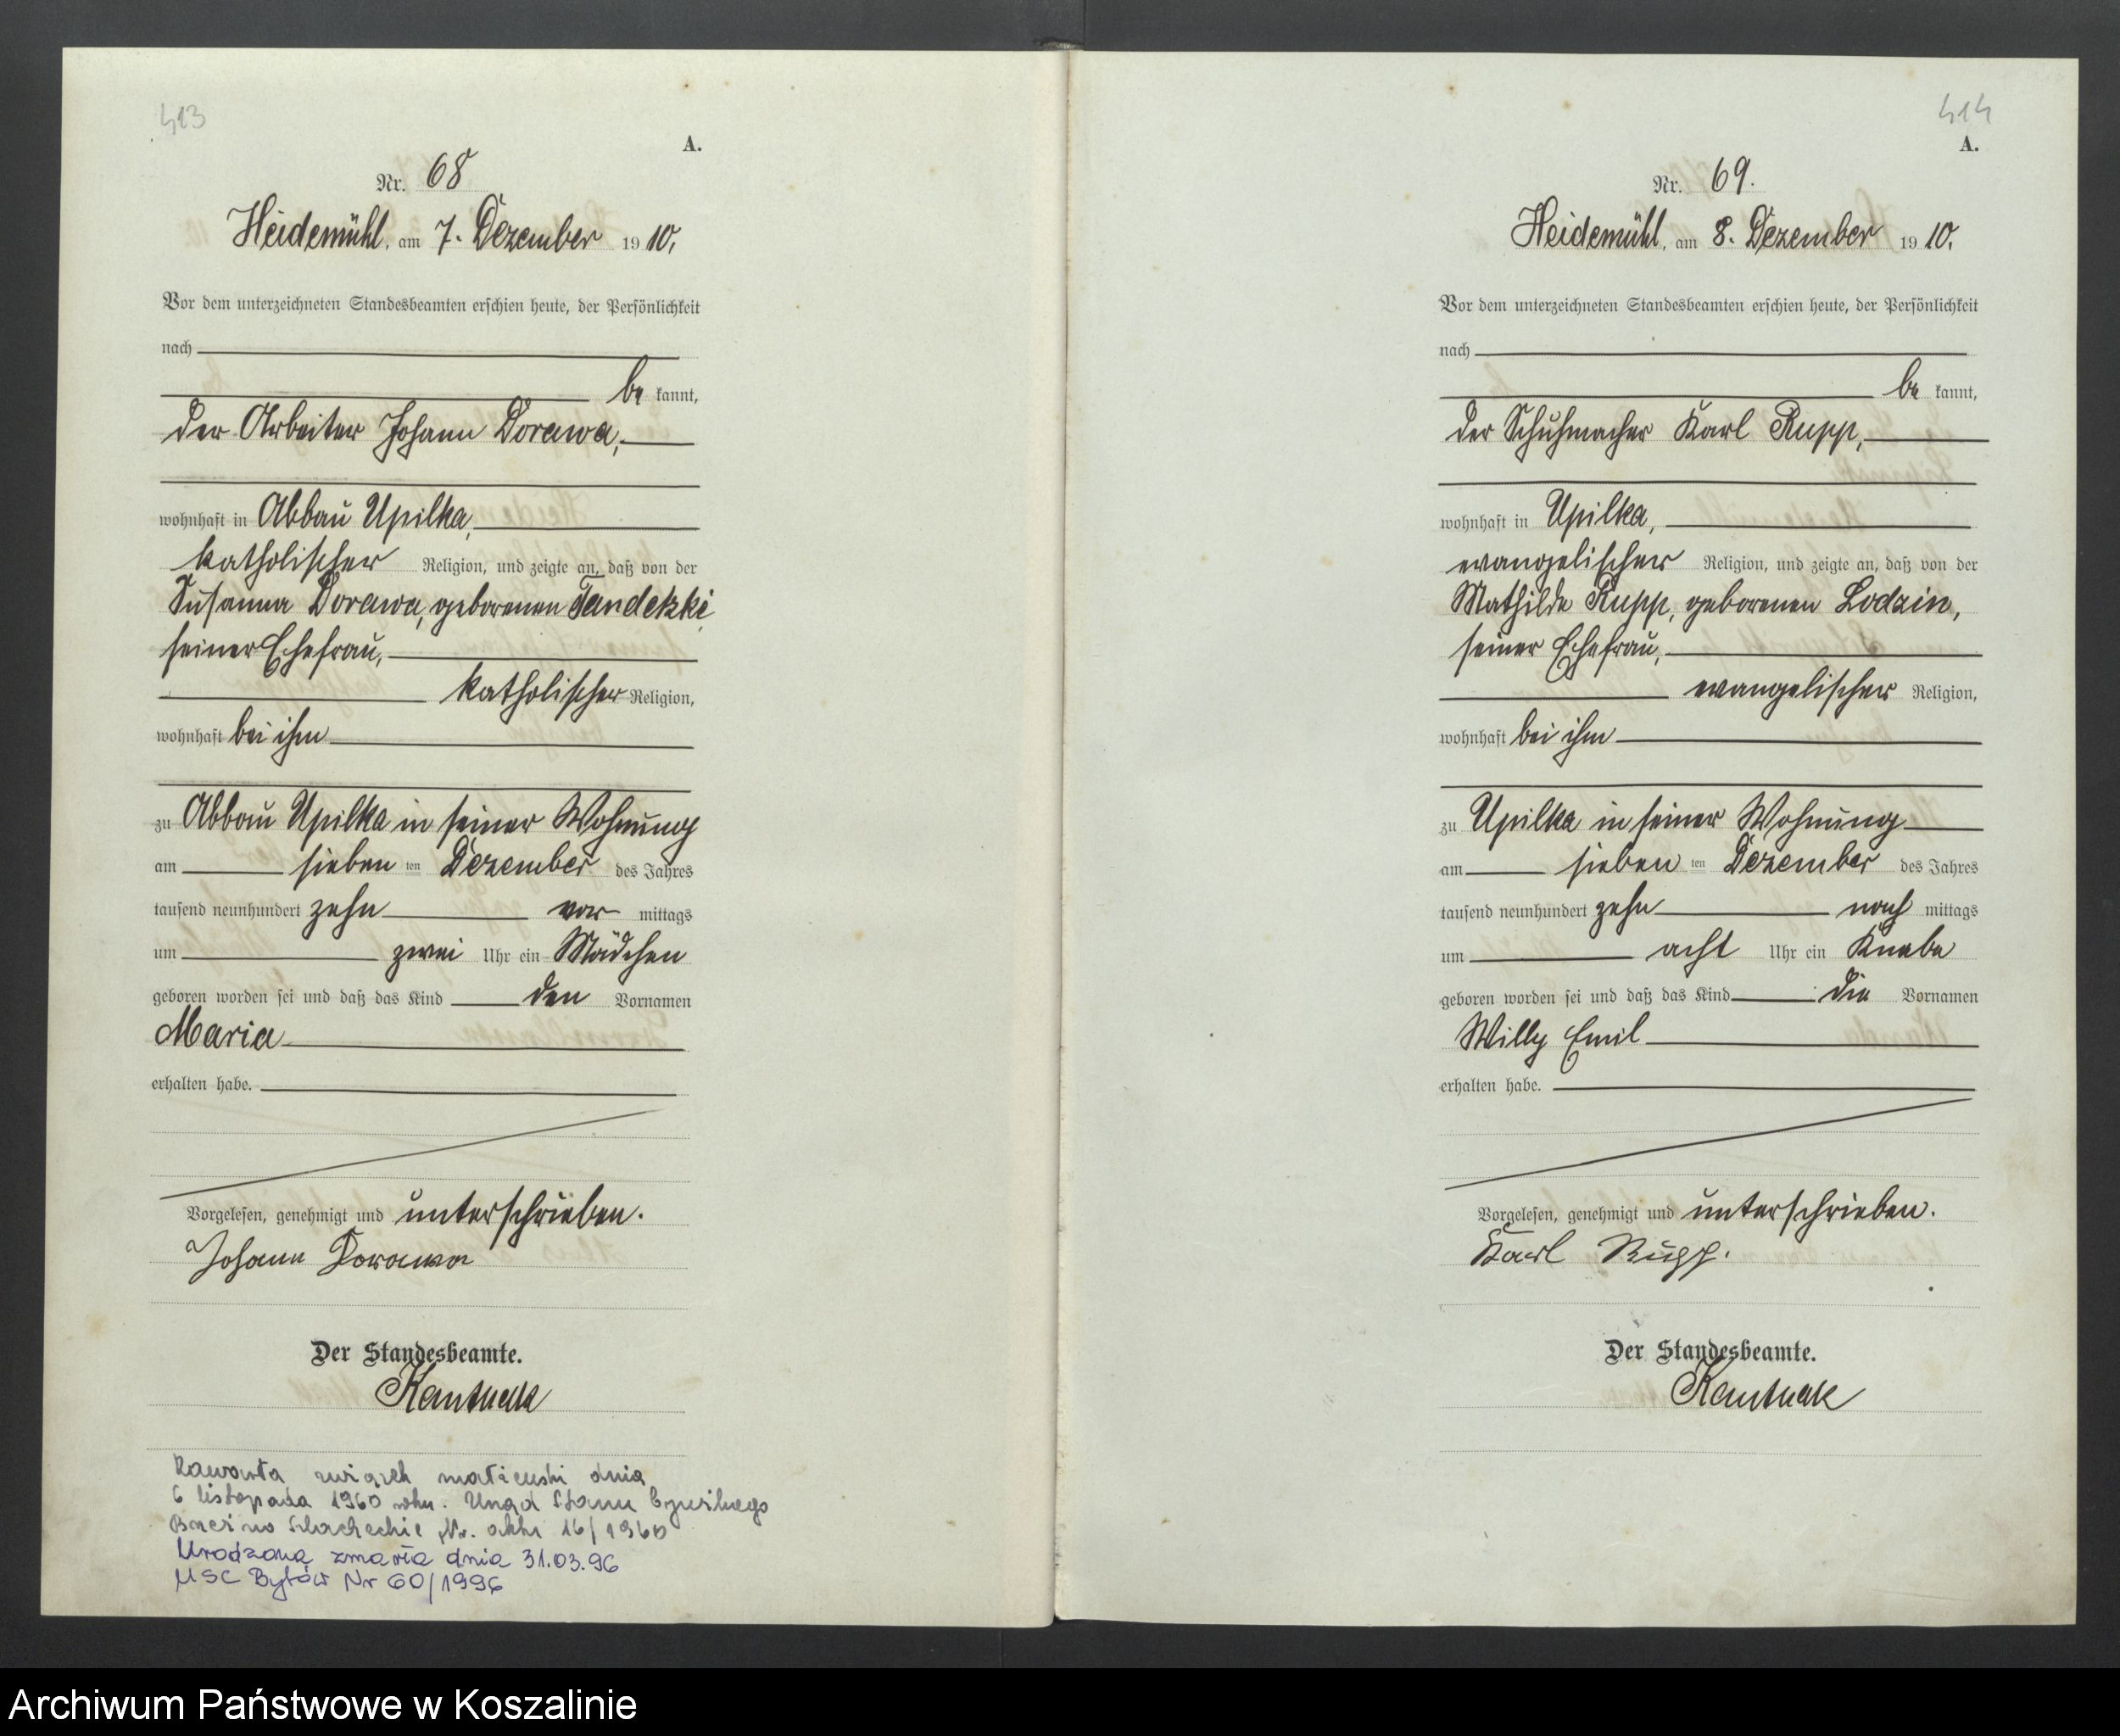 413
A.
Nr. 68
Heidemühl, am 7. Dezember 1910.
Vor dem unterzeichneten Standesbeamten erschien heute, der Persönlichkeit
nach
be kannt,
der Arbeiter Johann Dorawa,
wohnhaft in Abbau Upilka,
katholischer Religion, und zeigte an, daß von der
Susanna Dorawa, geborenen
seiner Ehefrau,
katholischer Religion,
wohnhaft bei ihm
zu Abbau Upilka in seiner Wohnung
am sieben ten Dezember des Jahres
tausend neunhundert zehn vor mittags
um zwei Uhr ein Mädchen
geboren worden sei und daß das Kind den Vornamen
Maria
erhalten habe.
Vorgelesen, genehmigt und unterschrieben.
Johann Dorawa
Der Standesbeamte.
Zawarła związek małżeński dnia
6 listopada 1960 roku. Urząd Stanu Cywilnego
Brzeźno Szlacheckie Nr. aktu 16/1960
Urodzona zmarła dnia 31.03.96
USC Bytów Nr 60/1996
414
A.
Nr. 69.
Heidemühl, am 8. Dezember 1910.
Vor dem unterzeichneten Standesbeamten erschien heute, der Persönlichkeit
nach
be kannt,
der Schuhmacher Karl Rupp,
wohnhaft in Upilka,
evangelischer Religion, und zeigte an, daß von der
Mathilde Rupp, geborenen Lodzin,
seiner Ehefrau,
evangelischer Religion,
wohnhaft bei ihm
zu Upilka in seiner Wohnung
am sieben ten Dezember des Jahres
tausend neunhundert zehn nach mittags
um acht Uhr ein Knabe
geboren worden sei und daß das Kind die Vornamen
Willy Emil
erhalten habe.
Vorgelesen, genehmigt und unterschrieben.
Karl Rupp.
Der Standesbeamte.
Archiwum Państwowe w Koszalinie